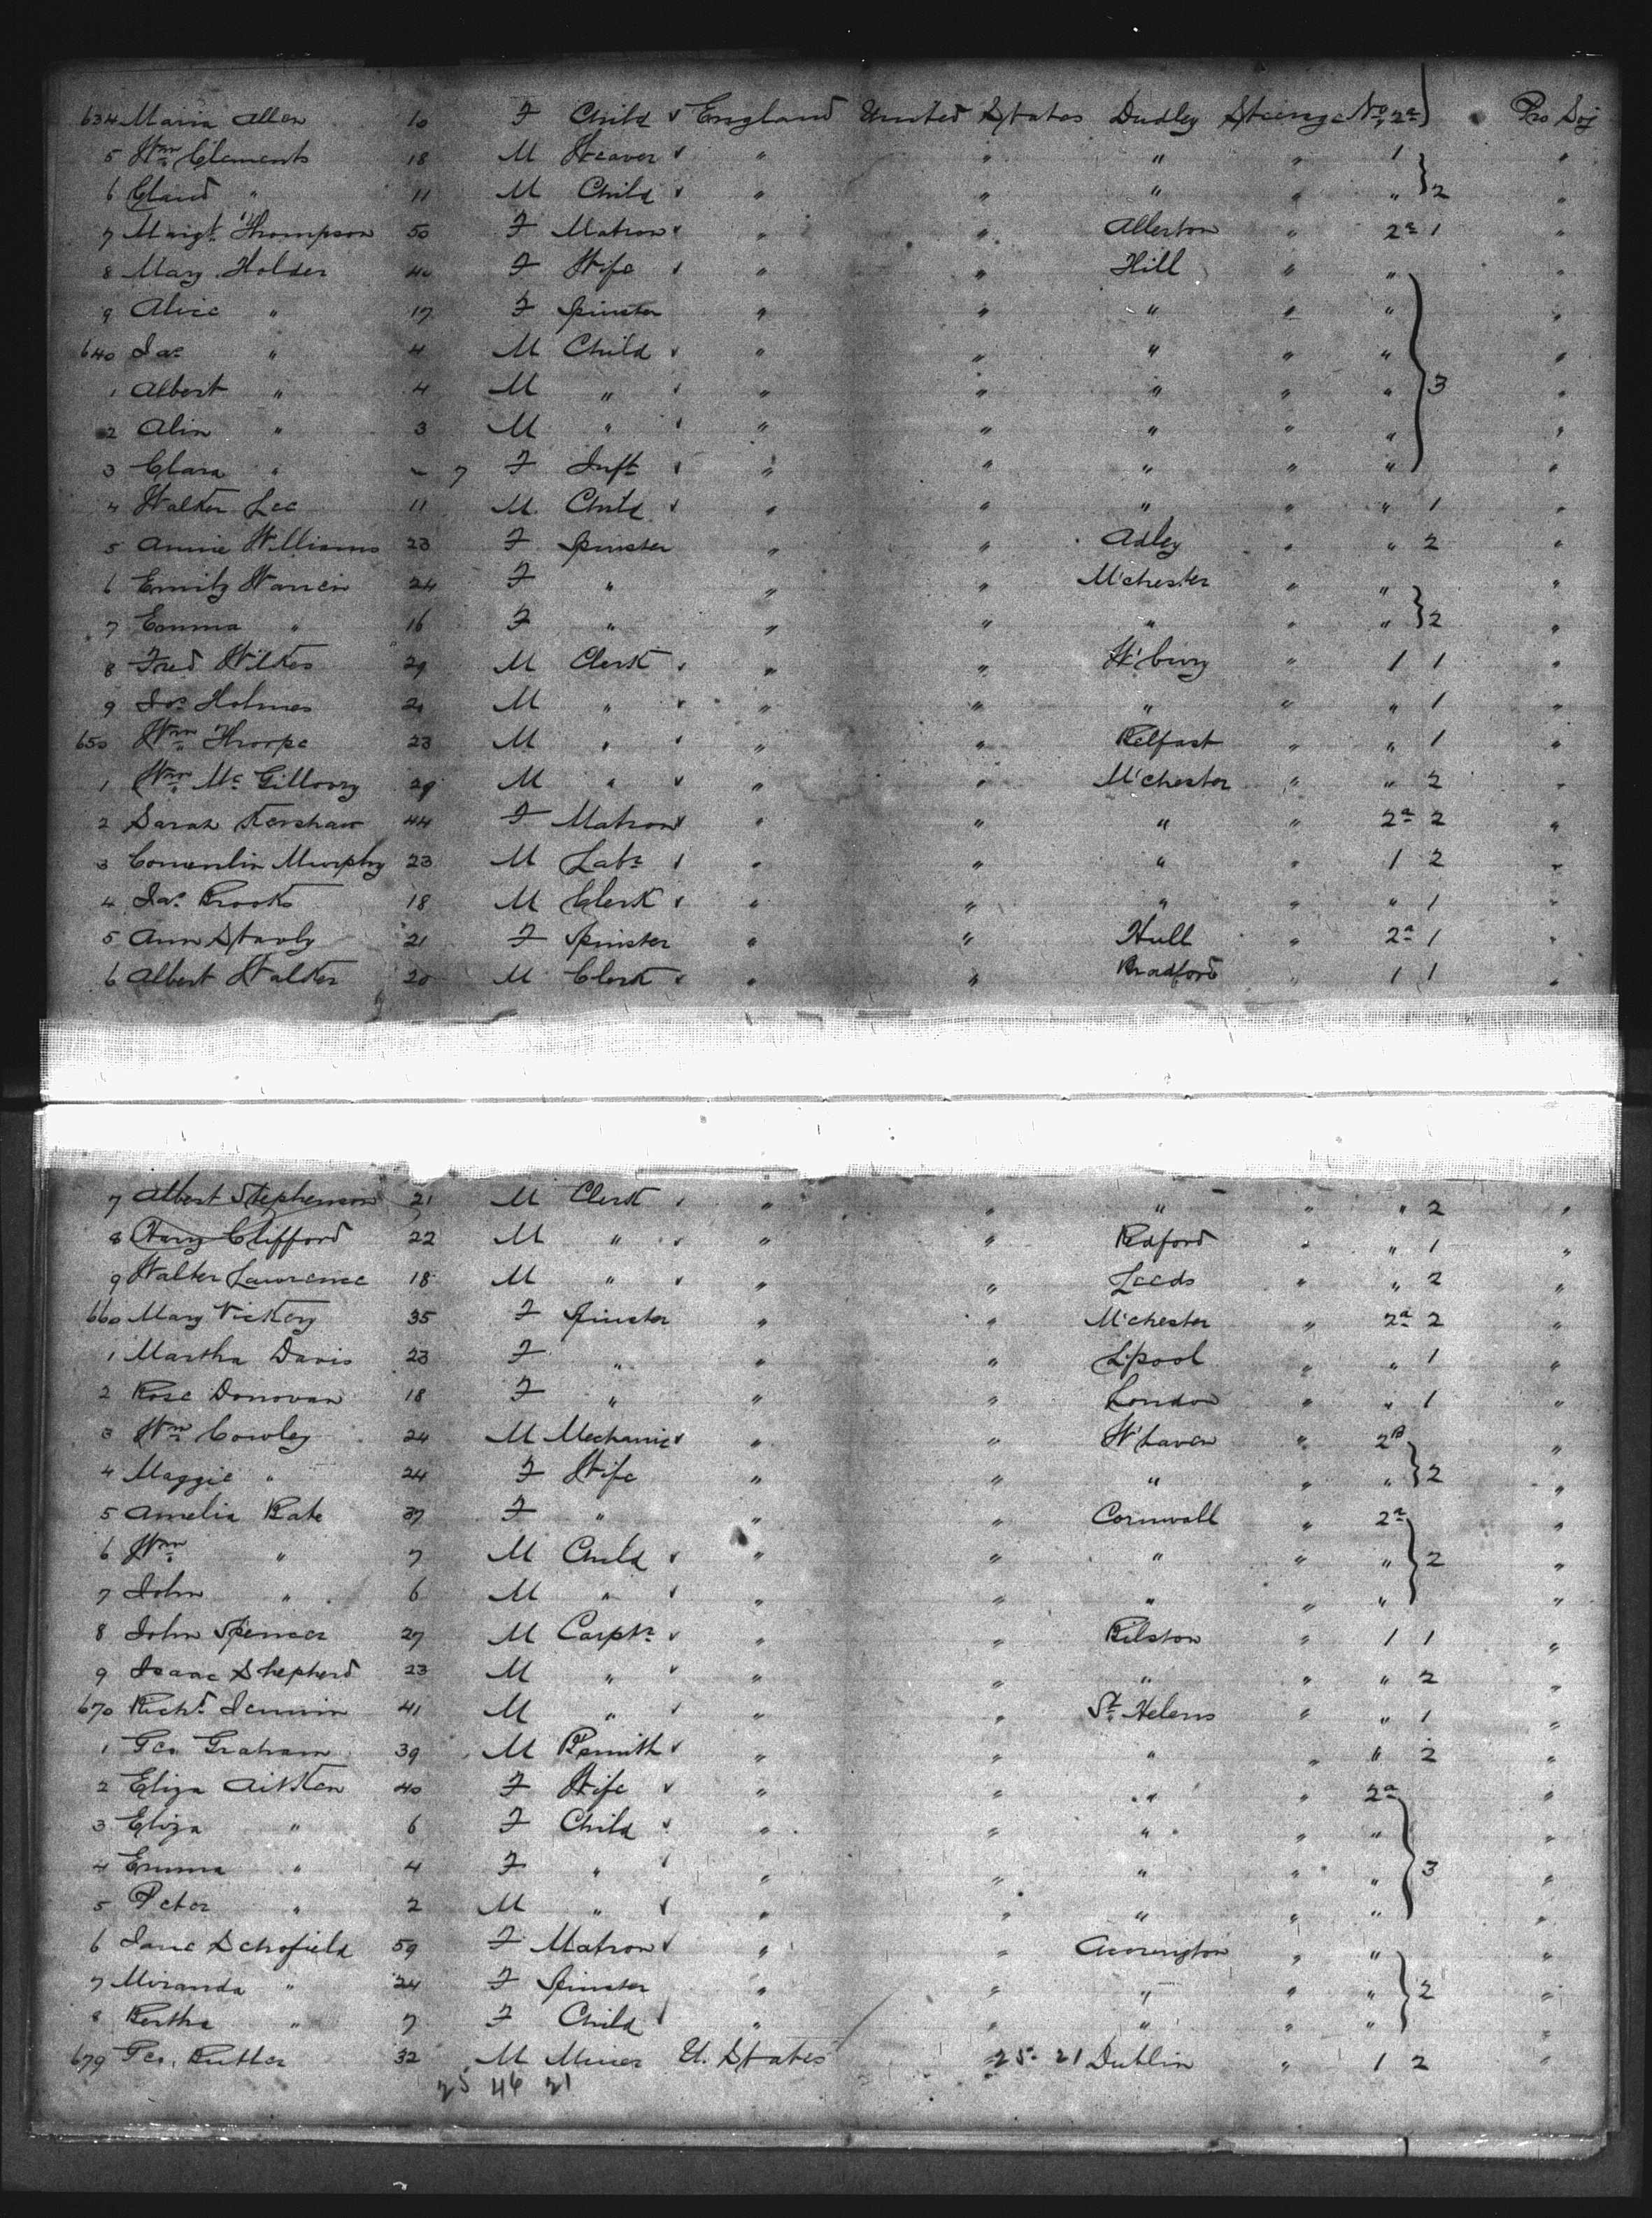 634 Maria Allen 10 F Child v England United States Dudley Steerage No 2a Pro Soj
5 Wm Clements 18 M Weaver v " " " " 1 "
6 Claud " 11 M Child v " " " " " } 2 "
7 Margt Thompson 50 F Matron v " " Allerton " 2a 1 "
8 Mary Holder 40 F Wife v " " Hill " " "
9 Alice " 17 F Spinster " " " " " "
640 Jas " 4 M Child v " " " " " "
1 Albert " 4 M " v " " " " " 3 "
2 " 3 M " v " " " " " "
3 Clara " - 7 F Inft v " " " " " "
4 Walter Lee 11 M Child v " " " " " 1 "
5 Annie Williams 23 F Spinster " " Adley " " 2 "
6 Emily 24 F " " " M'chester " " "
7 Emma " 16 F " " " " " " } 2 "
8 Fred Wilkes 29 M Clerk v " " W'bury " 1 1 "
9 Jos Holmes 21 M " v " " " " " 1 "
650 Wm Thorpe 23 M " v " " Belfast " " 1 "
1 Wm 29 M " v " " M'chester " " 2 "
2 Sarah Kershaw 44 F Matron v " " " " 2a 2 "
3 Murphy 23 M Labr v " " " " 1 2 "
4 Jas Brooks 18 M Clerk v " " " " " 1 "
5 Ann 21 F Spinster " " Hull " 2a 1 "
6 Albert Walker 20 M Clerk v " " Bradford " 1 1 "
7 Albert Stephenson 21 M Clerk v " " " " " 2 "
8 Harry Clifford 22 M " v " " Bedford " " 1 "
9 Walter Lawrence 18 M " v " " Leeds " " 2 "
660 Mary Vickery 35 F Spinster " " M'chester " 2a 2 "
1 Martha Davis 23 F " " " L'pool " " 1 "
2 Rose Donovan 18 F " " " London " " 1 "
3 Wm Cowley 24 M Mechanic v " " W'haven " 2B "
4 Maggie " 24 F Wife " " " " " } 2 "
5 Amelia Bate 37 F " " " Cornwall " 2a "
6 Wm " 7 M Child v " " " " " } 2 "
7 John " 6 M " v " " " " " "
8 John Spencer 27 M Carptr v " " Bilston " 1 1 "
9 Isaac Shepherd 23 M " v " " " " " 2 "
670 Richd 41 M " v " " St Helens " " 1 "
1 Geo Graham 39 M B'smith v " " " " " 2 "
2 Eliza Aitken 40 F Wife v " " " " 2a "
3 Eliza " 6 F Child v " " " " " "
4 Emma " 4 F " v " " " " " 3 "
5 Peter " 2 M " v " " " " " "
6 Jane Schofield 59 F Matron v " " Accrington " " "
7 Miranda " 24 F Spinster " " " " " } 2 "
8 Bertha " 7 F Child v " " " " " "
679 Geo. Butler 32 M Miner U. States 25 - 21 Dublin " 1 2 "
25 46 21